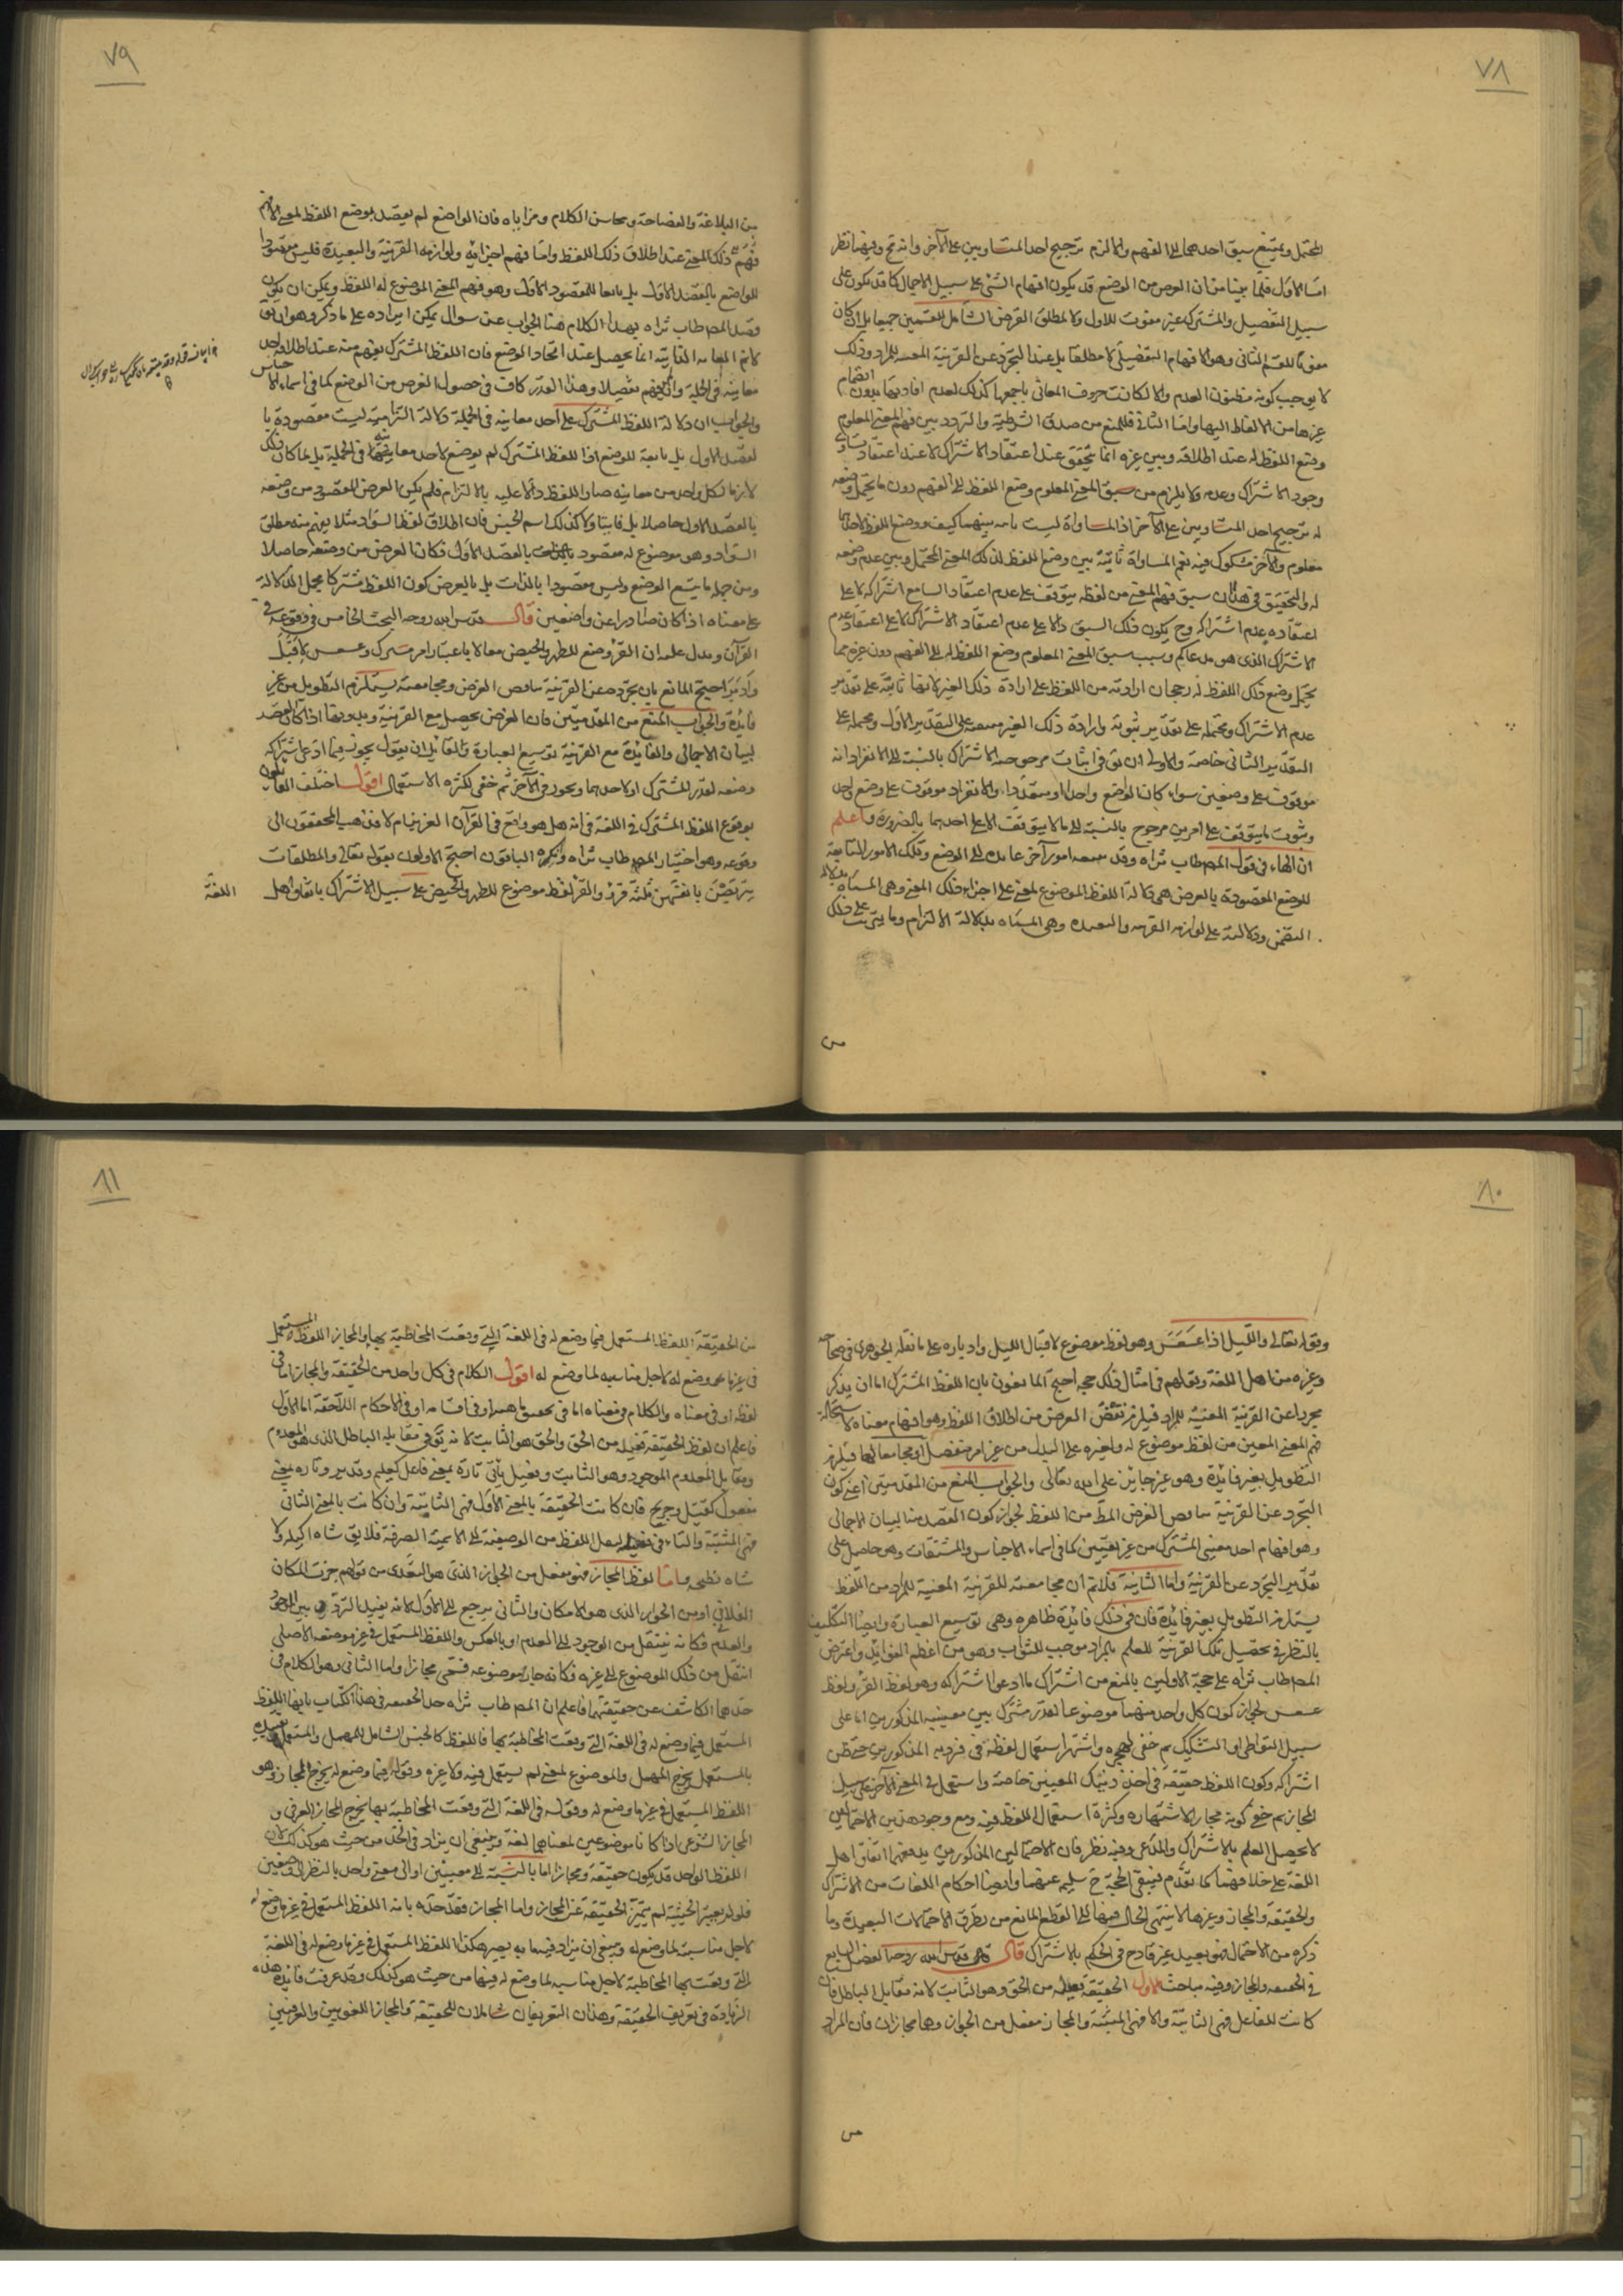 ٧٨
المحتمل ويمتنع سبق احدهما الى الفهم والا لزم ترجيح احد المتساويين على الآخر وانه مح وفيهما نظر
اما الاول فلما بينا من ان الغرض من الوضع قد يكون افهام الشئ على سبيل الاجمال كما قد يكون على
سبيل التفصيل والمشترك غير مفوت للاول ولا لمطلق الغرض الشامل للقسمين جميعا بل ان كان
مفوتا للقسم الثانى وهو الافهام التفصيلى لا مطلقا بل عند التجرد عن القرينة المعينة للمراد وذلك
لا يوجب كونه مظنون العدم والا لكانت حروف المعانى باجمعها كذلك لعدم افادتها بدون انضمام
غيرها من الالفاظ اليها واما الثانى فللمنع من صدق الشرطية والتردد بين فهم المعنى المعلوم
وضع اللفظ له عند اطلاقه وبين غيره انما يتحقق عند اعتقاد الاشتراك لا عند اعتقاد تساوى
وجود الاشتراك وعدمه ولا يلزم من سبق المعنى المعلوم وضع اللفظ له الى الفهم دون ما يحتمل وضعه
له ترجيح احد المتساويين على الآخر اذ المساواة ليست تامه بينهما كيف ووضع اللفظ لاحدهما
معلوم والآخر مشكوك فيه نعم المساواة ثابتة بين وضع اللفظ لذلك المعنى المحتمل وبين عدم وضعه
له والتحقيق فى هذا ان سبق فهم المعنى من لفظه يتوقف على عدم اعتقاد السامع اشتراكه لا على
اعتقاده عدم اشتراكه وح يكون ذلك السبق دالا على عدم اعتقاد الاشتراك لا على اعتقاد عدم
الاشتراك الذى هو مدعاكم وسبب سبق المعنى المعلوم وضع اللفظ له الى الفهم دون غيره مما
يحتمل وضع ذلك اللفظ له رجحان ارادته من اللفظ على ارادة ذلك الغير لانها ثابتة على تقدير
عدم الاشتراك ومحتمله على تقدير ثبوته وارادة ذلك الغير منتفية على التقدير الاول ومحتمله على
التقدير الثانى خاصة والاولى ان يق فى اثبات مرجوحية الاشتراك بالنسبة الى الانفراد انه
موقوف على وضعين سواء كان الواضع واحدا او متعددا والانفراد موقوف على وضع واحد
وثبوت ما يتوقف على امرين مرجوح بالنسبة الى ما لا يتوقف الا على احدهما بالضرورة واعلم
ان الهاء فى قول المصه طاب ثراه وقد يتبعه امور آخر عايده الى الوضع وتلك الامور التابعة
للوضع المقصودة بالعرض هى دلالة اللفظ الموضوع لمعنى على اجزاء ذلك المعنى وهى المسماه بدلالة
التضمن ودلالته على لوازمه القريبه والبعيده وهى المسماه بدلالة الالتزام وما يترتب على ذلك
٧٩
من البلاغة والفصاحة ومحاسن الكلام ومزاياه فان الواضع لم يقصد بوضع اللفظ لمعنى الا فهم
فهم ذلك المعنى عند اطلاق ذلك اللفظ واما فهم اجزائه ولوازمه القريبة والبعيدة فليس مقصودا
للواضع بالقصد الاول بل تابعا للمقصود الاول وهو فهم المعنى الموضوع له اللفظ ويمكن ان يكون
قصد المصه طاب ثراه بهذا الكلام هنا الجواب عن سوال يمكن ايراده على ما ذكر وهو ان يق
كانت الفائدة انما يحصل عند اتحاد الوضع فان اللفظ المشترك يفهم منه عند اطلاقه احد
معانيه فى الجملة وان لم يفهم تفصيلا وهذا القدر كاف فى حصول الغرض من الوضع كما فى اسماء الاجناس
والجواب ان دلالة اللفظ المشترك على احد معانيه فى الجملة دلالة التزامية ليست مقصودة با
لقصد الاول بل تابعة للوضع اذ اللفظ المشترك لم يوضع لاحد معانيه فى الجملة بل لما كان ذلك
لازما لكل واحد من معانيه صار اللفظ دالا عليه بالالتزام فلم يكن الغرض المقصود من وضعه
بالقصد الاول حاصلا بل فايتا ولا كذلك اسم الجنس فان اطلاق لفظ السواد مثلا يفهم منه مطلق
السواد وهو موضوع له مقصود بالقصد الاول فكان الغرض من وضعه حاصلا
ومن جمله ما يتبع الوضع وليس مقصودا بالذات بل بالعرض كون اللفظ مشتركا مجمل الدلالة
على معناه اذا كان صادرا عن واضعين قال قدس الله روحه البحث الخامس فى وقوعه فى
القرآن ويدل عليه ان القرؤ وضع للطهر والحيض معا لا باعتبار امر مشترك وعسعس لاقبل
وادبر احتج المانع بان تجرده عن القرينة يناقض الغرض ومجامعته يستلزم التطويل من غير
فايدة والجواب المنع من المقدمتين فان الغرض يحصل مع القرينة وبدونها اذا كان القصد
لبيان الاجمالى والفائدة مع القرينة توسيع العبارة ولقائل ان يقول يجوز فيما ادعى اشتراكه
وضعه لقدر المشترك او لاحدهما ويجوز فى الآخر ثم خفى لكثرة الاستعمال اقول اختلف القائلون
بوقوع اللفظ المشترك فى اللغة فى انه هل هو واقع فى القرآن العزيز ام لا فذهب المحققون الى
وقوعه وهو اختيار المصه طاب ثراه وانكره الباقون احتج الاولون بقوله تعالى والمطلقات
يتربصن بانفسهن ثلثة قروء والقرؤ لفظ موضوع للطهر والحيض على سبيل الاشتراك باتفاق اهل
اللغة
٨٠
وقوله تعالى والليل اذا عسعس وهو لفظ موضوع لاقبال الليل وادباره على ما نقله الجوهرى فى صحاحه
وغيره من اهل اللغة ونقلهم فى امثال ذلك حجه احتج المانعون بان اللفظ المشترك اما ان يذكر
مجردا عن القرينة المعينة للمراد فيلزم نقض الغرض من اطلاق اللفظ وهو افهام معناه لاستحالة
فهم المعنى المعين من لفظ موضوع له ولغيره على البدل من غير امر منفصل او مجامعا لها فيلزم
التطويل بغير فايدة وهو غير جايز على الله تعالى والجواب المنع من المقدمتين اعنى كون
التجرد عن القرينة يناقض الغرض المط من اللفظ لجواز كون القصد منه البيان الاجمالى
وهو افهام احد معنيى المشترك من غير تعيين كما فى اسماء الاجناس والمشتقات وهو حاصل على
تقدير التجرد عن القرينة واما الثانية فلا نم ان مجامعته للقرينة المعينة للمراد من اللفظ
يستلزم التطويل بغير فايدة فان فى ذلك فايدة ظاهره وهى توسيع العبارة وايضا التكليف
بالنظر فى تحصيل تلك القرينة للعلم بالمراد موجب للثواب وهو من اعظم الفوايد واعترض
المصه طاب ثراه على حجة الاولين بالمنع من اشتراك ما ادعوا اشتراكه وهو لفظ القرؤ ولفظ
عسعس لجواز كون كل واحد منهما موضوعا لقدر مشترك بين معنييه المذكورين اما على
سبيل التواطى او التشكيك ثم خفى لهجره واشتهار استعمال لفظه فى فرديه المذكورين حتى ظن
اشتراكه وكون اللفظ حقيقة فى احد ذينك المعنيين خاصة واستعمل فى المعنى الآخر على سبيل
المجاز ثم خفى كونه مجازا لاشتهاره وكثرة استعمال اللفظ فيه ومع وجود هذين الاحتمالين
لا يحصل العلم بالاشتراك والمدعى وفيه نظر فان الاحتمالين المذكورين يدفعهما اتفاق اهل
اللغة على خلافهما كما تقدم فتبقى الحجة ح سليمه عنهما وايضا احكام اللغات من الاشتراك
والحقيقة والمجاز وغيرها لا ينتهى الحال فيها الى القطع المانع من تطرق الاحتمالات البعيدة وما
ذكره من الاحتمال فهو بعيد غير قادح فى الحكم بالاشتراك قال قدس الله روحه الفصل السابع
فى الحقيقه والمجاز وفيه مباحث الاول الحقيقة فعيلة من الحق وهو الثابت لانه مقابل الباطل فان
كانت للفاعل فهى الثابتة والا فهى المثبتة والمجاز مفعل من الجواز وهما مجازان فان المراد
٨١
من الحقيقة اللفظ المستعمل فيما وضع له فى اللغة التى وقعت المخاطبة بها والمجاز اللفظ المستعمل
فى غير ما وضع له لاجل مناسبه لما وضع له اقول الكلام فى كل واحد من الحقيقة والمجاز اما فى
لفظه او فى معناه والكلام فى معناه اما فى تحقيق ماهيته او فى اقسامه او فى الاحكام اللاحقة اما الاول
فاعلم ان لفظ الحقيقة فعيله من الحق والحق هو الثابت لانه يق فى مقابله الباطل الذى هو المعدوم
ومقابل المعدوم الموجود وهو الثابت وفعيل يأتى تارة بمعنى فاعل كعليم وقدير وتاره بمعنى
مفعول كقتيل وجريح فان كانت الحقيقة بالمعنى الاول فهى الثابتة وان كانت بالمعنى الثانى
فهى المثبتة والتاء فى فعيله لنقل اللفظ من الوصفية الى الاسمية الصرفة فلا يق شاه اكيله ولا
شاه نطيحه واما لفظ المجاز فهو مفعل من الجواز الذى هو التعدى من قولهم جزت المكان
الفلانى او من الجواز الذى هو الامكان والثانى يرجع الى الاول لانه يفيد التردد بين الوجود
والعدم فكانه ينتقل من الوجود الى العدم او بالعكس واللفظ المستعمل فى غير موضعه الاصلى
انتقل من ذلك الموضوع الى غيره فكانه جاز موضوعه فسمى مجازا واما الثانى وهو الكلام فى
حدهما الكاشف عن حقيقتهما فاعلم ان المصه طاب ثراه حد الحقيقه فى هذا الكتاب بانها اللفظ
المستعمل فيما وضع له فى اللغة التى وقعت المخاطبة بها فاللفظ كالجنس الشامل للمهمل والمستعمل وتقييده
بالمستعمل يخرج المهمل والموضوع لمعنى لم يستعمل فيه ولا غيره وقوله فيما وضع له يخرج المجاز وهو
اللفظ المستعمل فى غير ما وضع له وقوله فى اللغة التى وقعت المخاطبة بها يخرج المجاز العرفى و
المجاز الشرعى اذا كانا موضوعين لمعناهما لغة وينبغى ان يزاد فى الحد من حيث هو كذلك لان
اللفظ الواحد قد يكون حقيقة ومجازا اما بالنسبة الى معنيين او الى معنى واحد بالنظر الى وضعين
فلو لم يعتبر الحيثية لم يتميز الحقيقة عن المجاز واما المجاز فقد حده بانه اللفظ المستعمل فى غير ما وضع له
لاجل مناسبة لما وضع له وينبغى ان يزاد فيه ما به يصير هكذا اللفظ المستعمل فى غير ما وضع له فى اللغة
التى وقعت بها المخاطبة لاجل مناسبه لما وضع له فيها من حيث هو كذلك وقد عرفت فائدة هذه
الزيادة فى تعريف الحقيقة وهذان التعريفان شاملان للحقيقة والمجاز اللغويين والعرفيين